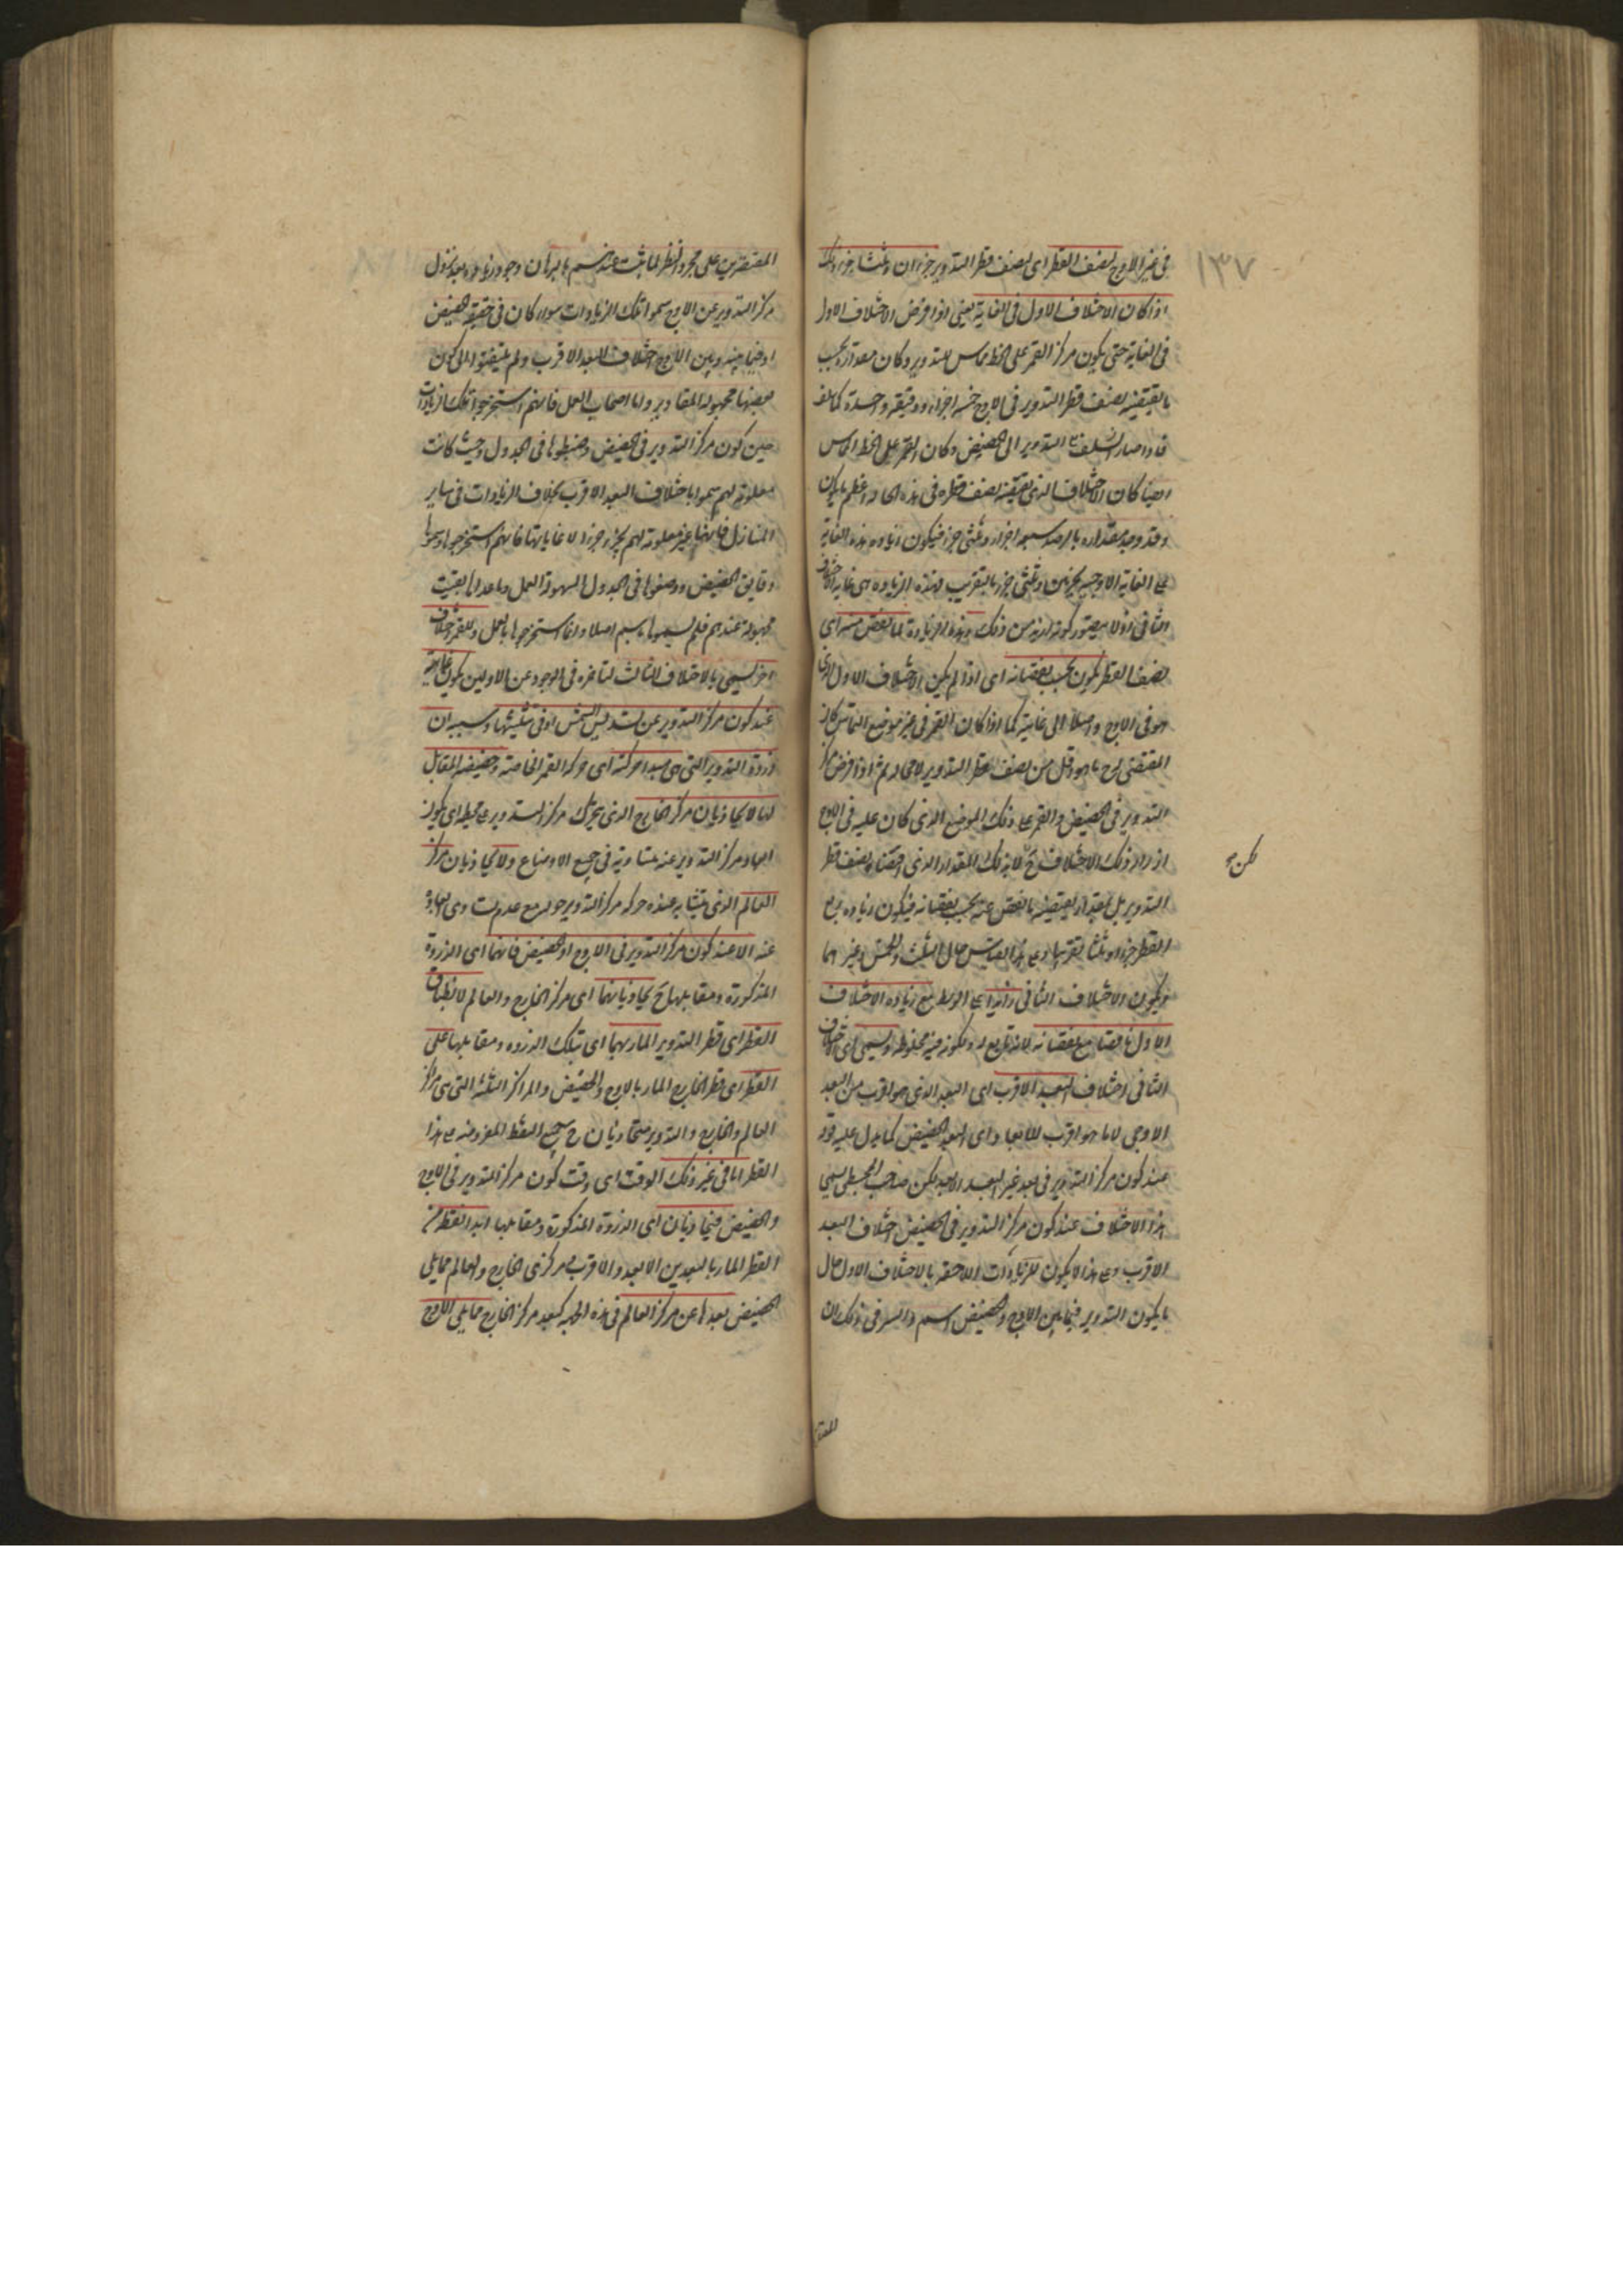 ١٣٧
في غير الاوج لنصف القطر اى لنصف قطر التدوير جزءان وثلثا جزء وذلك
اذا كان الاختلاف الاول في الغاية يعني اذا فرض الاختلاف الاول
في الغاية حتى يكون مركز القمر على الخط المماس للتدوير وكان مقداره بحسب
ما يقتضيه نصف قطر التدوير في الاوج خمسة اجزاء ودقيقة واحدة كما سلف
فاذا صار التدوير الى الحضيض وكان القمر على الخط المماس
ايضا كان الاختلاف الذي يقتضيه نصف قطره في هذه الحالة اعظم ما يكون
وقد وجد مقداره بالرصد سبعة اجزاء وثلثي جزء فيكون زيادة هذه الغاية
على الغاية الاوجية بجزئين وثلثي جزء بالتقريب فهذه الزيادة هي غاية الاختلاف
الثاني ولا يتصور كونه ازيد من ذلك وهذه الزيادة لما نقص منه اى
نصف القطر يكون بحسب نقصانه اى اذا لم يكن الاختلاف الاول الذي
هو في الاوج واصلا الى غايته كما اذا كان القمر في غير موضع التماس كان
المقتضى له ح ما هو اقل من نصف قطر التدوير لا محالة ثم اذا فرض مركز
التدوير في الحضيض والقمر على ذلك الموضع الذي كان عليه في الاوج
ازداد ذلك الاختلاف ح لا بذلك المقدار الذي اقتضاه نصف قطر
لكن
التدوير بل بمقدار يقتضيه ما نقص عنه بحسب نقصانه فيكون زيادة ربع
القطر جزءا وثلثا تقريبا وعلى هذا القياس حال الثلث والخمس وغيرهما
ويكون الاختلاف الثاني زائدا على الوسط مع زيادة الاختلاف
الاول ناقصا مع نقصانه لانه تابع له ولكونه فيه مخلوطه ويسمى اى الاختلاف
الثاني اختلاف البعد الاقرب اى البعد الذي هو اقرب من البعد
الاوجي لا ما هو اقرب الابعاد اى البعد الحضيضي كما يدل عليه قوله
عند كون مركز التدوير في بعد غير البعد الابعد لكن صاحب المجسطي يسمى
هذا الاختلاف عند كون مركز التدوير في الحضيض اختلاف البعد
الاقرب وعلى هذا لا يكون للزيادات اللاحقة بالاختلاف الاول حال
ما يكون التدوير فيما بين الاوج والحضيض اسم والسر في ذلك ان
المقتصرين على مجرد النظر لما ثبت عندهم بالبرهان وجود زيادة بعد نزول
مركز التدوير عن الاوج سموا تلك الزيادات سواء كان في حقيقة الحضيض
او فيما بينه وبين الاوج اختلاف البعد الاقرب ولم يلتفتوا الى كون
بعضها مجهولة المقادير واما اصحاب العمل فانهم استخرجوا تلك الزيادات
حين كون مركز التدوير في الحضيض وضبطوها في الجدول وحيث كانت
معلومة لهم سموها باختلاف البعد الاقرب بخلاف الزيادات في سائر
المنازل فانها غير معلومة لهم بجزء جزء الا غاياتها فانهم استخرجوها وسموها
دقايق الحضيض ووضعوها في الجدول لسهولة العمل وما عداها بقيت
مجهولة عندهم فلم يسموها باسم اصلا وانما استخرجوها بالعمل وللقمر اختلاف
آخر يسمى بالاختلاف الثالث لتاخره في الوجود عن الاولين يكون غايته
عند كون مركز التدوير عن تسديس الشمس او في تثليثها وسببه ان
ذروة التدوير التي هي مبدا حركته اى حركة القمر الخاصة وحضيضه المقابل
لها لا يحاذيان مركز الخارج الذي يتحرك مركز التدوير على محيطه اى يكون
ابعاد مركز التدوير عنه متساوية في جميع الاوضاع ولا يحاذيان مركز
العالم الذي يتشابه عنده حركة مركز التدوير حوله مع عدم تساوى ابعاده
عنه الا عند كون مركز التدوير في الاوج او الحضيض فانهما اى الذروة
المذكورة ومقابلها ح يحاذيانهما اى مركز الخارج والعالم لانطباق
القطر اى قطر التدوير المار بهما اى تلك الذروة ومقابلها على
القطر اى قطر الخارج المار بالاوج والحضيض والمراكز الثلثة التي هي مركز
العالم والخارج والتدوير فيتحاذيان ح جميع النقط المفروضة على هذا
القطر اما في غير ذلك الوقت اى وقت كون مركز التدوير في الاوج
والحضيض فيحاذيان اى الذروة المذكورة ومقابلها ابدا نقطة من
القطر المار بالبعدين الابعد والاقرب ومركزى الخارج والعالم مما يلي
الحضيض بعدها عن مركز العالم في هذه الجهة كبعد مركز الخارج مما يلي الاوج